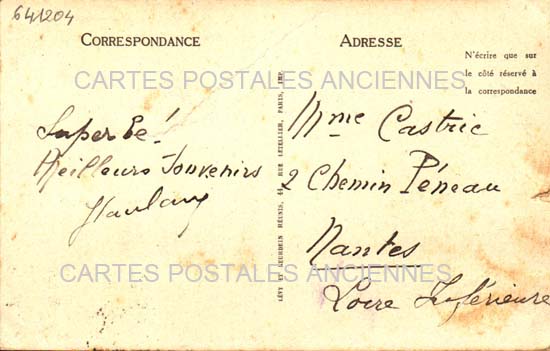 641204
CORRESPONDANCE
ADRESSE
N'écrire que sur
le côté réservé à
la correspondance
CARTES POSTALES ANCIENNES
Superbe!
Meilleurs Souvenirs
LÉVY ET NEURDEIN RÉUNIS, 44, RUE LETELLIER, PARIS, IMP.
Mme Castric
2 Chemin Péneau
Nantes
Loire Inférieure
CARTES POSTALES ANCIENNES